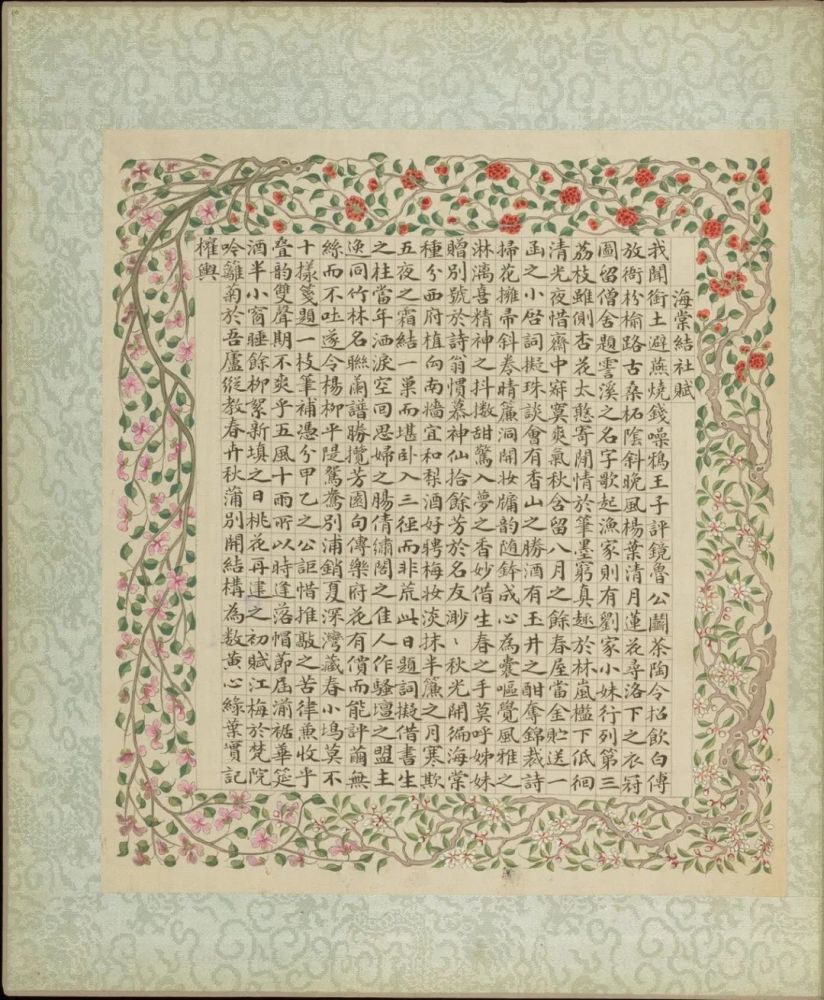 海棠結社賦
我聞銜土避燕燒錢噪鴉王子評鏡魯公鬬茶陶令招飲白傅
放衙枌榆路古桑柘陰斜晚風楊葉清月蓮花尋洛下之衣冠
圖留僧舍題雲溪之名字歌起漁家則有劉家小妹行列第三
荔枝雖側杏花太憨寄閒情於筆墨窮真趣於林嵐檻下低徊
清光夜惜齋中寂寞爽氣秋含留八月之餘春屋當金貯送一
函之小啓詞擬珠談會有香山之勝酒有玉井之酣奪錦裁詩
掃花擁帚斜卷晴簾洞開妝牖韵随鉢成心為囊嘔覺風雅之
淋漓喜精神之抖擻甜驚入夢之香妙借生春之手莫呼姊妹
贈別號於詩翁慣慕神仙拾餘芳於名友渺、秋光開徧海棠
種分西府植向南墻宜和梨酒好聘梅妝淡抹半簾之月寒欺
五夜之霜結一巢而堪卧入三徑而非荒此日題詞擬借書生
之柱當年洒淚空回思婦之腸倩繡閣之佳人作騷壇之盟主
逸同竹林名聯蘭譜勝攬芳園句傳樂府花有償而能評繭無
絲而不吐遂令楊柳平隄鴛鴦別浦銷夏深灣藏春小塢莫不
十樣箋題一枝筆補憑分甲乙之公詎惜推敲之苦律兼收乎
叠韵雙聲期不爽乎五風十雨所以時逢落帽節屆湔裙華筵
酒半小窗睡餘柳絮新填之日桃花再建之初賦江梅於梵院
吟籬菊於吾廬縱教春卉秋蒲別開結構為数黃心綠葉實記
權輿